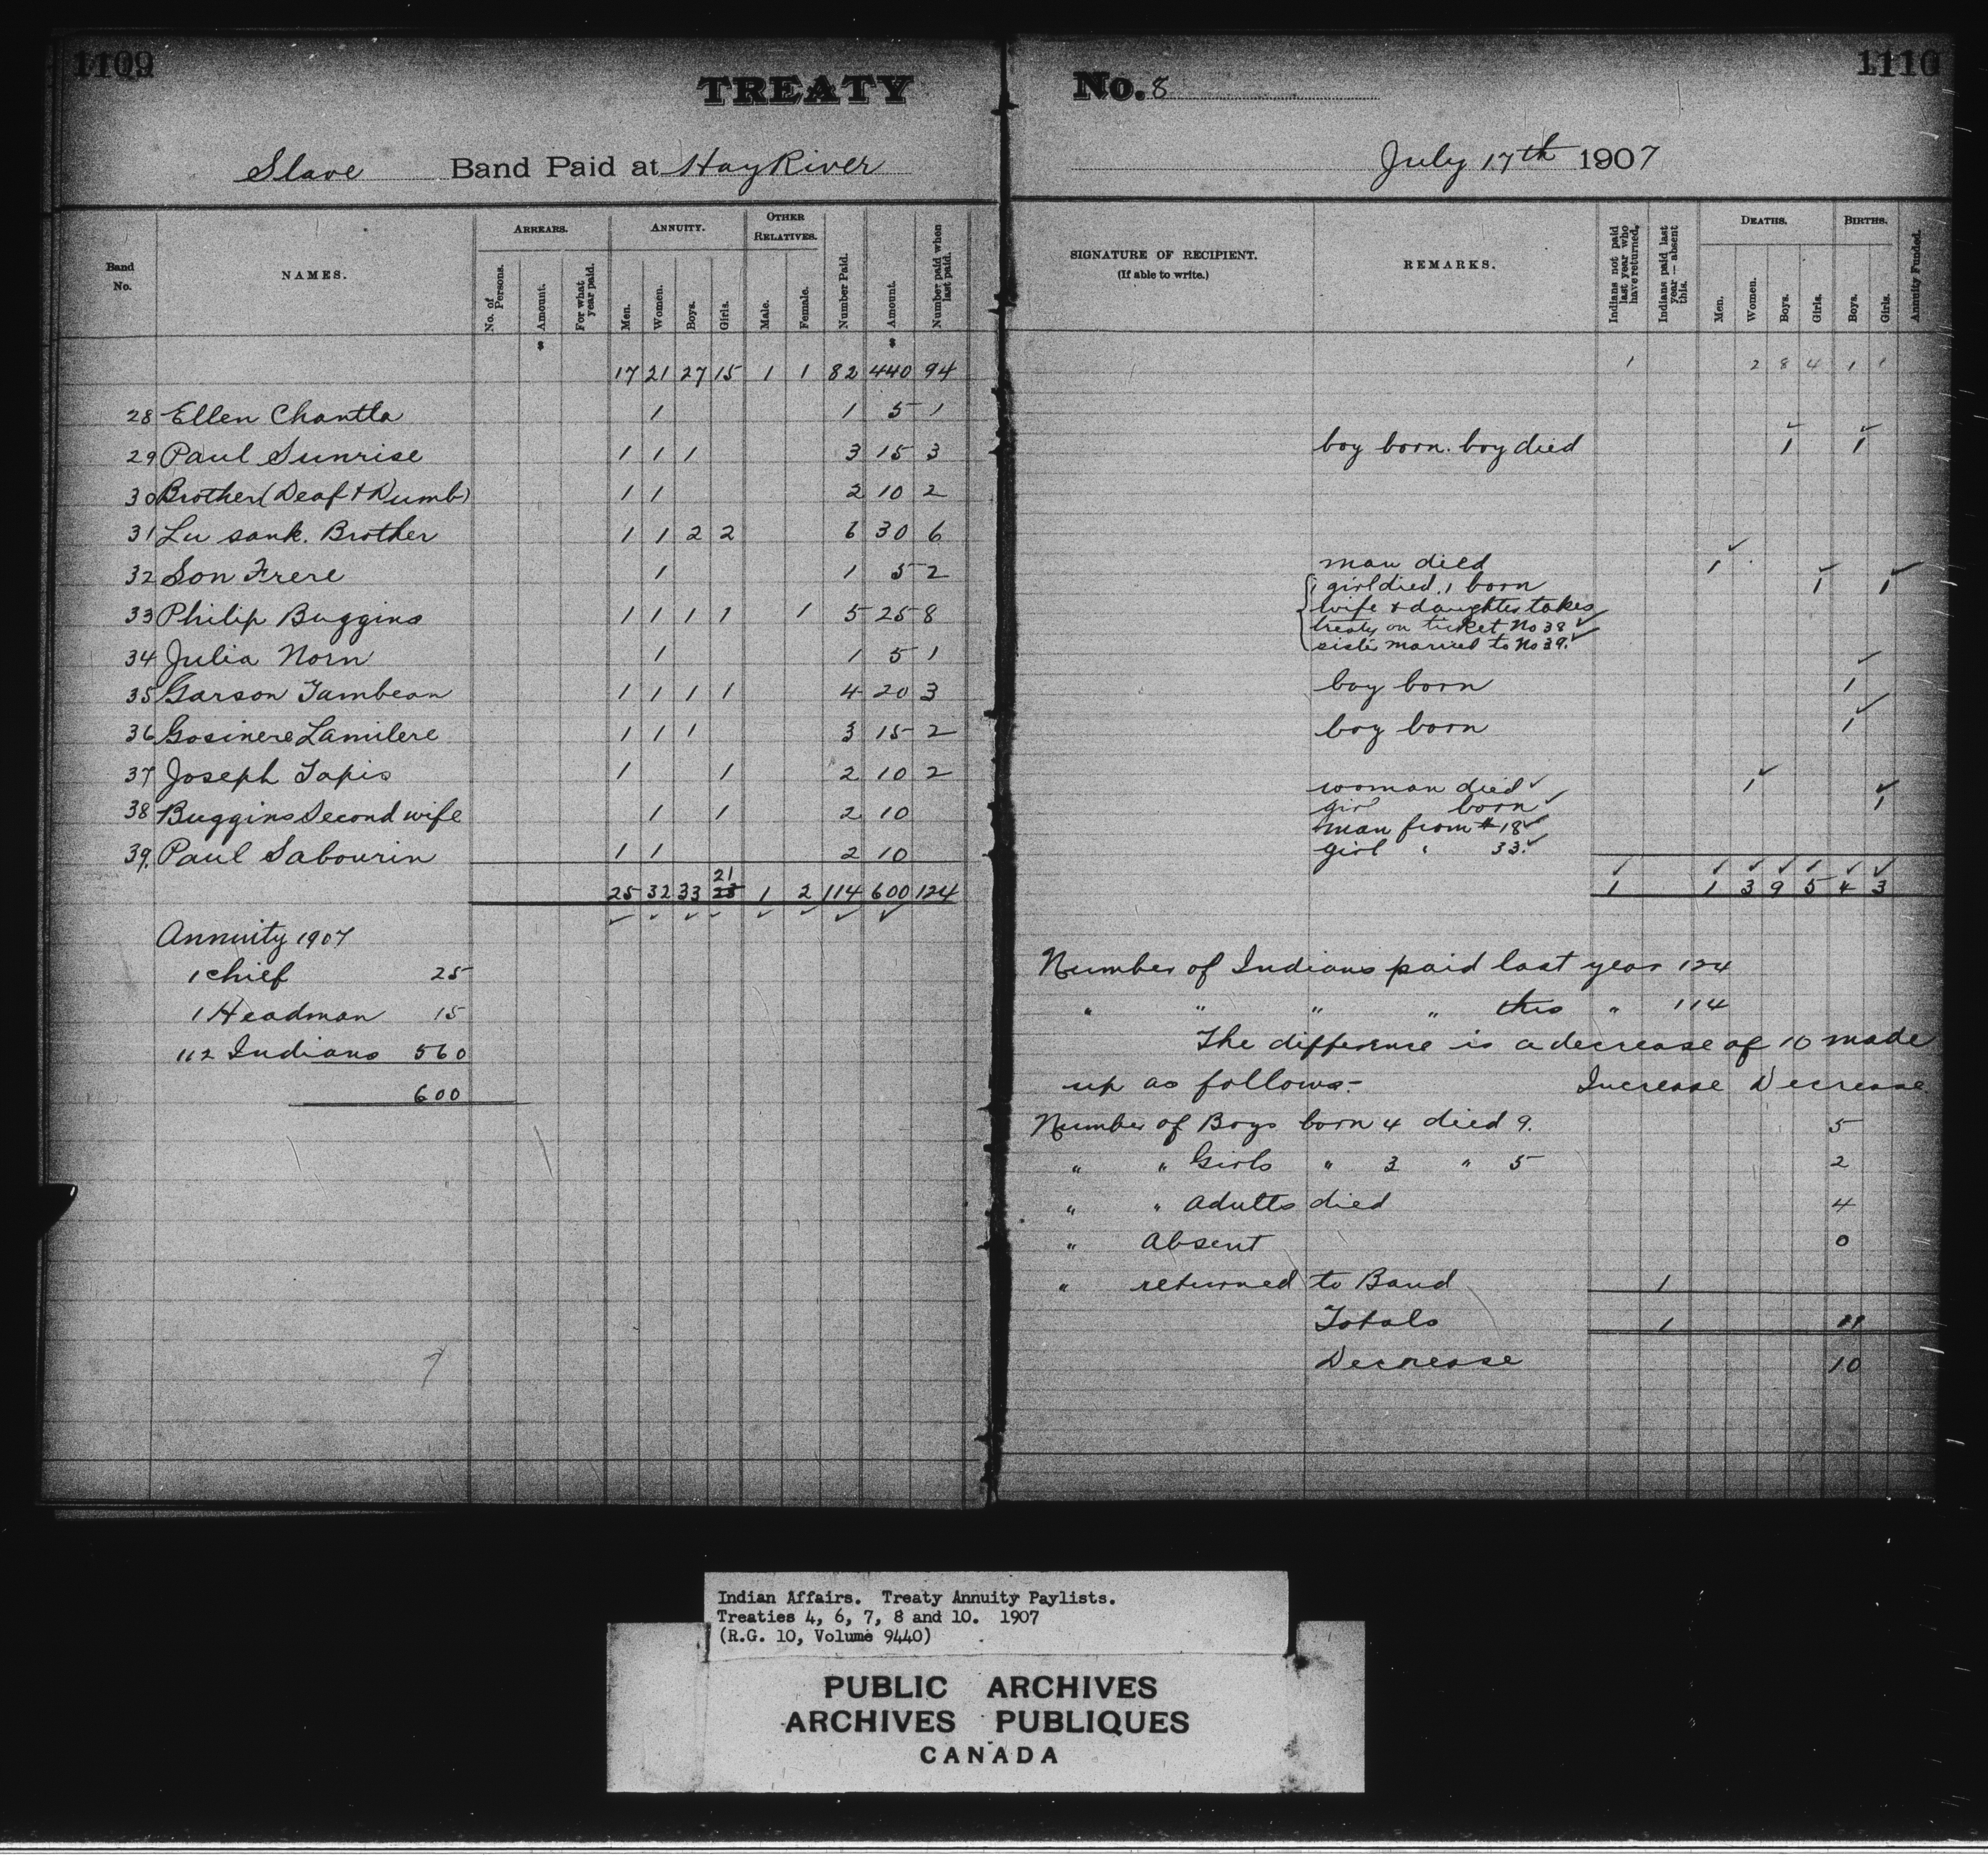 1109
TREATY
Slave Band Paid at Hay River
Band No.
NAMES.
ARREARS.
No. of Persons.
Amount.
For what year paid.
ANNUITY.
Men.
Women.
Boys.
Girls.
OTHER RELATIVES.
Male.
Female.
Number Paid.
Amount.
Number paid when last paid.
$ $
17 21 27 15 1 1 82 440 94
28 Ellen Chantla 1 1 5 1
29 Paul Sunrise 1 1 1 3 15 3
30 Brother (Deaf & Dumb) 1 1 2 10 2
31 Lu sank. Brother 1 1 2 2 6 30 6
32 Son Frere 1 1 5 2
33 Philip Buggins 1 1 1 1 1 5 25 8
34 Julia Norn 1 1 5 1
35 Garson Tambean 1 1 1 1 4 20 3
36 Gosinere Lamilere 1 1 1 3 15 2
37 Joseph Tapis 1 1 2 10 2
38 Buggins Second wife 1 1 2 10
39. Paul Sabourin 1 1 2 10
21
25 32 33 23 1 2 114 600 124
Annuity 1907
1 chief 25
1 Headman 15
112 Indians 560
600
1110
No. 8
July 17th 1907
SIGNATURE OF RECIPIENT.
(If able to write.)
REMARKS.
Indians not paid last year who have returned.
Indians paid last year—absent this.
DEATHS.
Men.
Women.
Boys.
Girls.
BIRTHS.
Boys.
Girls.
Annuity Funded.
1 2 8 4 1 1
boy born. boy died 1 1
man died 1
1 girl died, 1 born 1 1
wife & daughter takes
treaty on ticket No 38
sister married to No 39.
boy born 1
boy born 1
woman died 1
girl born 1
man from # 18
girl " 33.
1 1 3 9 5 4 3
Number of Indians paid last year 124
" " " " this " 114
The difference is a decrease of 10 made
up as follows:- Increase Decrease
Number of Boys born 4 died 9. 5
" " Girls " 3 " 5 2
" " Adults died 4
" Absent 0
" returned to Band 1
Totals 1 11
Decrease 10
Indian Affairs. Treaty Annuity Paylists.
Treaties 4, 6, 7, 8 and 10. 1907
(R.G. 10, Volume 9440)
PUBLIC ARCHIVES
ARCHIVES PUBLIQUES
CANADA